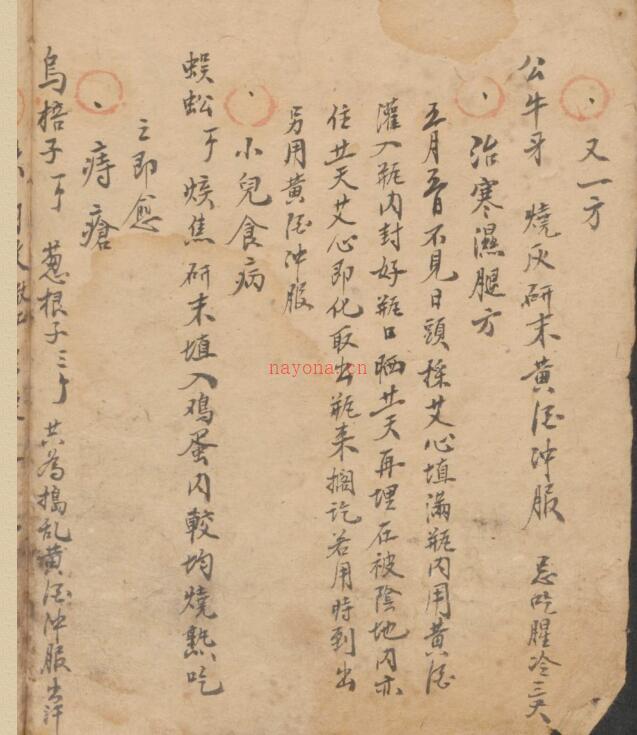 又一方
公牛牙 燒灰研末黄酒冲服 忌吃腥冷三天
治寒濕腿方
五月五日不見日頭採艾心填滿瓶内用黄酒
灌入瓶内封好瓶口晒廿天再埋在被陰地内亦
住廿天艾心即化取出瓶来擱訖若用時到出
另用黄酒冲服
小兒食病
蜈蚣 焦研末填入鸡蛋内較均燒熟吃
之即愈
痔瘡
烏梧子 葱根子三个 共為搗乱黄酒冲服出汗
nayona.cn